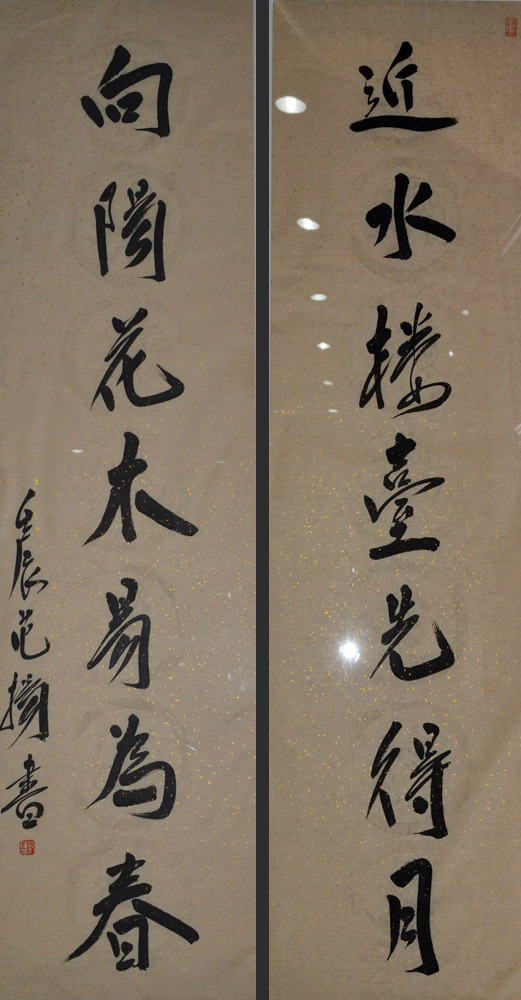 近水楼臺先得月
向陽花木易為春
壬辰范揚書